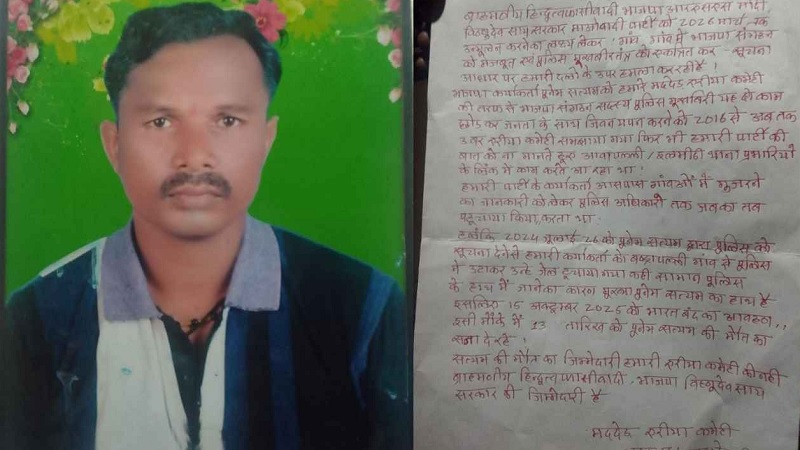 ब्राहमणीय हिन्दुत्व फासीवादी भाजपा आरएसएस मोदी,
विष्णुदेव साय सरकार माओवादी पार्टी को 2026 मार्च तक
उन्मूलन करने का लक्ष्य लेकर गांव, गांव में भाजपा संगठन
को मजबूत एवं पुलिस मुखबीरतंत्र को एकत्रित कर सूचना
आधार पर हमारी दलों के उपर हमला कर रही है।
भाजपा कार्यकर्ता पुनेम सत्यम को हमारे मददेड एरीया कमेटी
की तरफ से भाजपा संगठन सदस्य पुलिस मुखबिरी यह ही काम
छोड कर जनता के साथ जिवन यापन करने को 2016 से अब तक
एरीया कमेटी समझाया गया फिर भी हमारी पार्टी की
बात को ना मानते हुरू आवापल्ली / इल्मीडी थाना प्रभारियों
के लिंक में काम करते आ रहा था।
हमारी पार्टी के कार्यकर्ता आसपास गांवओं में गुजरने
का जानकारी को लेकर पुलिस अधिकारी तक जबका तब
पहूचाया किया करता था
2024 जूलाई 26 को पुनेम सत्यम द्वारा पुलिस को
सूचना देने से हमारी कार्यकर्ता को गांव से पुलिस
में उठाकर उन्हे जेल कही सामान पुलिस
के हाथ में जानेका कारण मुख्या पुनेम सत्यम का हाथ है
इसलिए 15 अक्टूबर 2025 को भारत बंद का
इसी मौके में 13 तारिख को पुनेम सत्यम की मौत का
सजा दे रहे।
सत्यम की मौत का जिम्मेदारी हमारी एरीया कमेटी की नही
ब्राहमणीय हिन्दुत्व फासीवादी, भाजपा विष्णुदेव साय
सरकार की जिम्मेदारी है
मददेड एरीया कमेटी